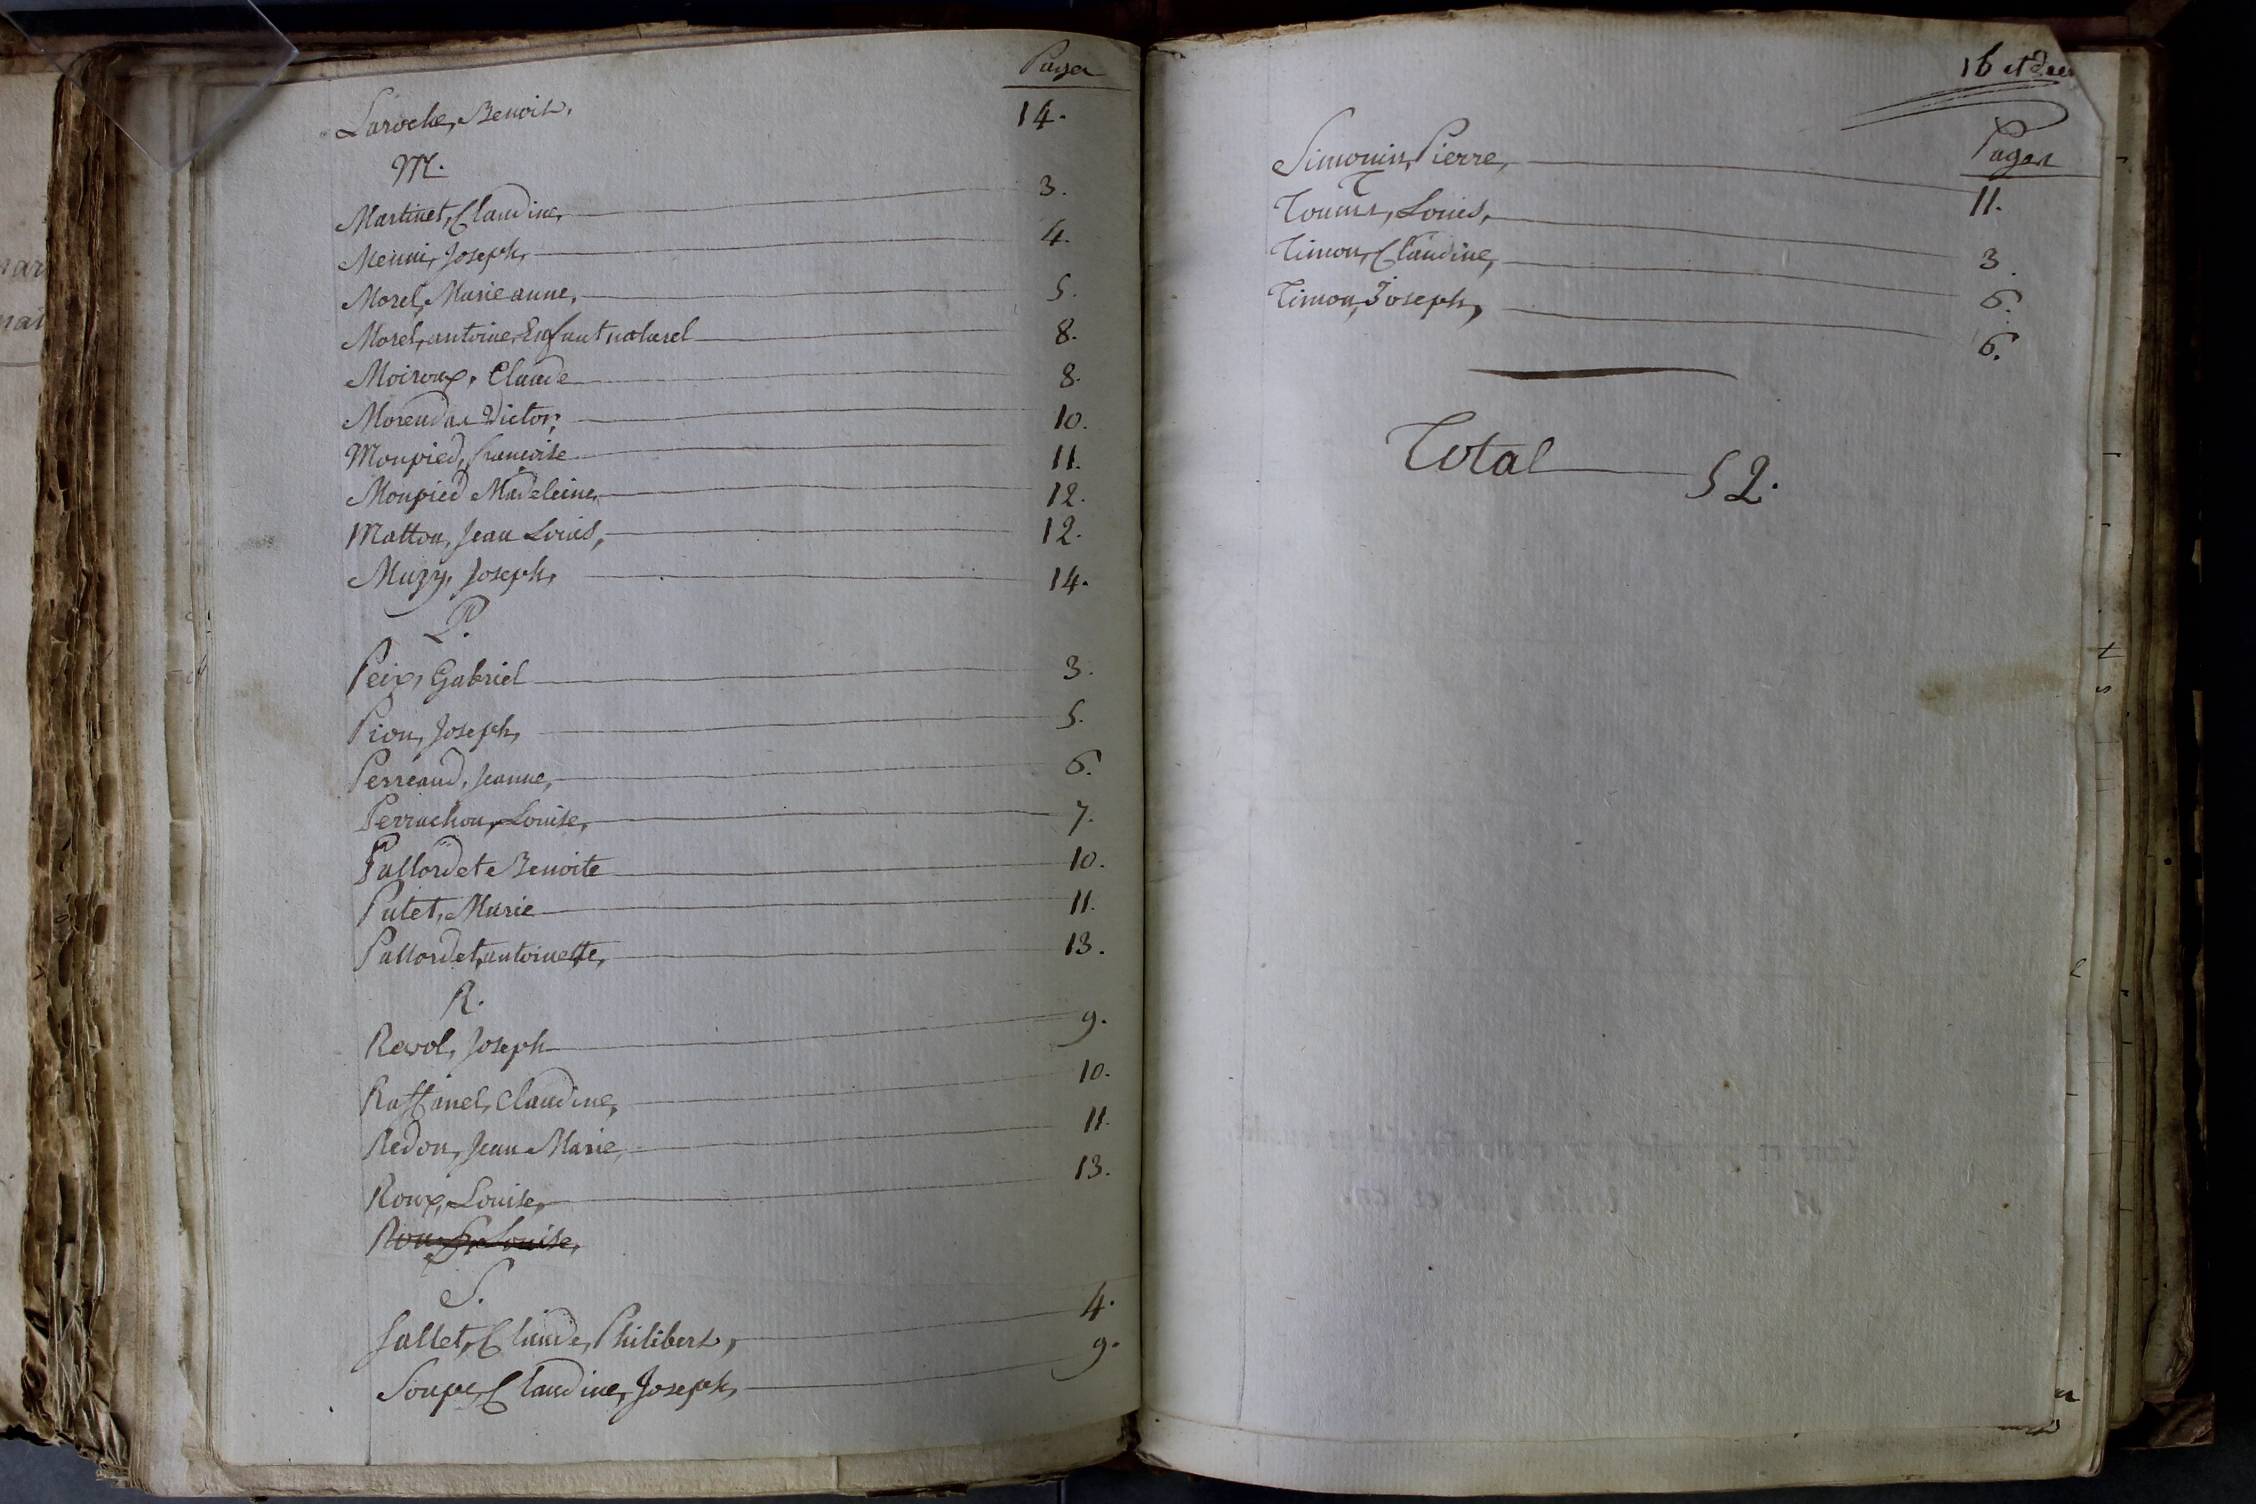 Pages
Laroche, Benoit, 14.
M.
Martinet, Claudine, 3.
Menni, Joseph, 4.
Morel, Marie anne, 5.
Morel, antoine, Enfant naturel 8.
Moiroux, Claude 8.
Victor, 10.
Monpied, francoise 11.
Monpied Madeleine, 12.
Matton, Jean Louis, 12.
Muzy, Joseph, 14.
P.
Peix, Gabriel 3.
Pion, Joseph, 5.
Perréaud, Jeanne, 6.
Perrachon, Louise, 7.
Pallordet, Benoite 10.
Putet, Marie 11.
Pallordet, antoinette, 13.
R.
Revol, Joseph 9.
Raffanel, Claudine, 10.
Redon, Jean Marie, 11.
Roux, Louise, 13.
Roux, Louise,
S.
Sallet, Claude, Philibert, 4.
Soupe, Claudine, Joseph, 9.
16 et der
Pages
Simonin, Pierre, 11.
T
Louis, 3.
Timon, Claudine, 6.
Timon, Joseph, 6.
Total 52.